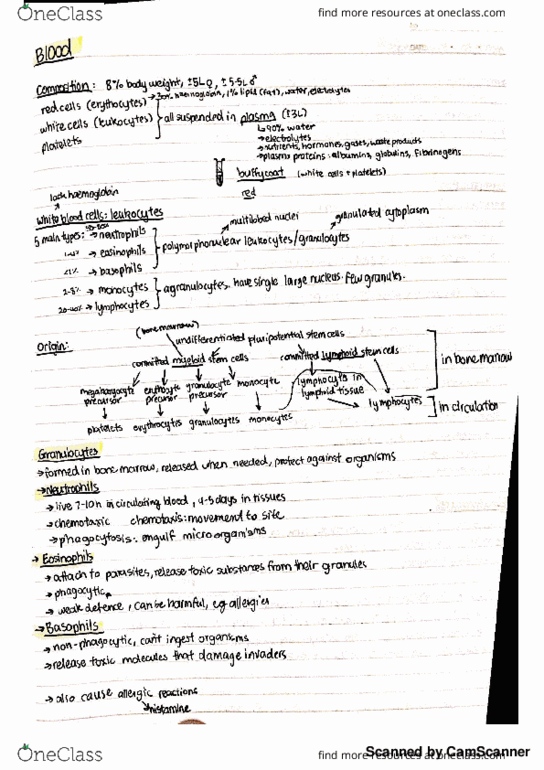 OneClass
find more resources at oneclass.com
Blood
Composition: 8% body weight, ±5L♀, ±5.5L♂
red cells (erythrocytes) → haemoglobin, 1% lipid (fat), water, electrolytes
white cells (leukocytes) } all suspended in plasma (±3L)
platelets
↳ 90% water
→ electrolytes
→ nutrients, hormones, gases, waste products
→ plasma proteins: albumins, globulins, fibrinogens
buffycoat (white cells + platelets)
red
lack haemoglobin
White blood cells: leukocytes
multilobed nuclei
granulated cytoplasm
5 main types: → neutrophils
→ eosinophils } polymorphonuclear leukocytes/granulocytes
<1% → basophils
2-8% → monocytes } agranulocytes. have single large nucleus. Few granules.
→ lymphocytes
(bone marrow)
Origin: undifferentiated pluripotential stem cells
committed myeloid stem cells committed lymphoid stem cells
in bone marrow
megakaryocyte precursor erythrocyte precursor granulocyte precursor monocyte lymphocytes in lymphoid tissue
lymphocytes ] → in circulation
platelets erythrocytes granulocytes monocytes
Granulocytes
→ formed in bone marrow, released when needed, protect against organisms
→ Neutrophils
→ live 7-10h in circulating blood, 4-5 days in tissues
→ chemotaxic chemotaxis: movement to site
→ phagocytosis: engulf microorganisms
→ Eosinophils
→ attach to parasites, release toxic substances from their granules
→ phagocytic
→ weak defence, can be harmful, eg allergies
→ Basophils
→ non-phagocytic, can't ingest organisms
→ release toxic molecules that damage invaders
→ also cause allergic reactions
↘ histamine
Scanned by CamScanner
OneClass
find more resources at oneclass.com